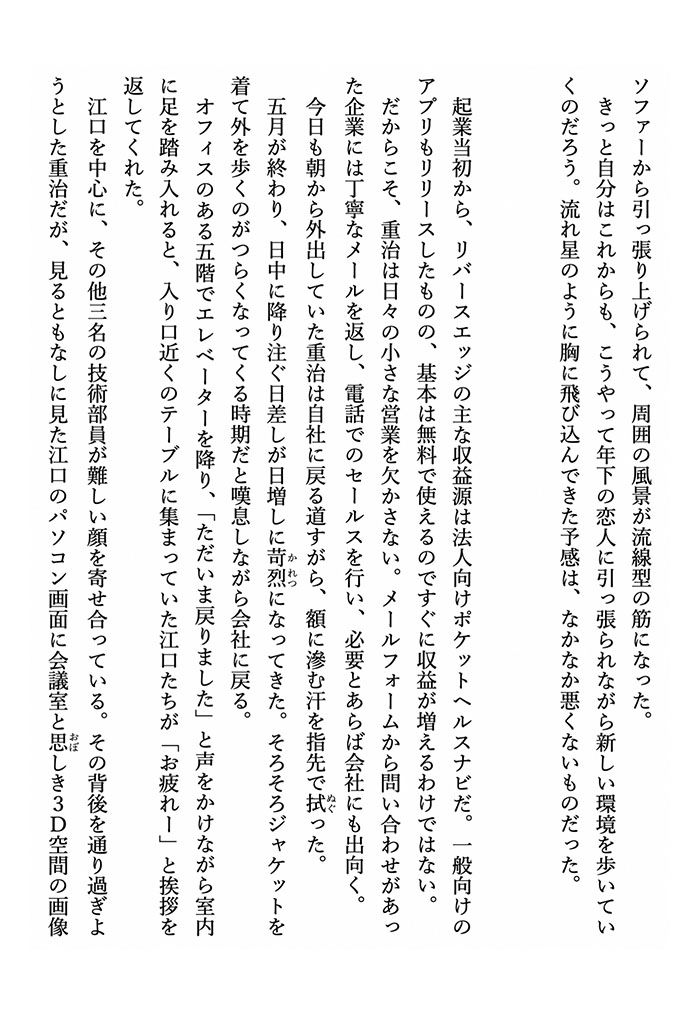 ソファーから引っ張り上げられて、周囲の風景が流線型の筋になった。
きっと自分はこれからも、こうやって年下の恋人に引っ張られながら新しい環境を歩いてい
くのだろう。流れ星のように胸に飛び込んできた予感は、なかなか悪くないものだった。
起業当初から、リバースエッジの主な収益源は法人向けポケットヘルスナビだ。一般向けの
アプリもリリースしたものの、基本は無料で使えるのですぐに収益が増えるわけではない。
だからこそ、重治は日々の小さな営業を欠かさない。メールフォームから問い合わせがあっ
た企業には丁寧なメールを返し、電話でのセールスを行い、必要とあらば会社にも出向く。
今日も朝から外出していた重治は自社に戻る道すがら、額に滲む汗を指先で拭った。
五月が終わり、日中に降り注ぐ日差しが日増しに苛烈になってきた。そろそろジャケットを
着て外を歩くのがつらくなってくる時期だと嘆息しながら会社に戻る。
オフィスのある五階でエレベーターを降り、「ただいま戻りました」と声をかけながら室内
に足を踏み入れると、入り口近くのテーブルに集まっていた江口たちが「お疲れー」と挨拶を
返してくれた。
江口を中心に、その他三名の技術部員が難しい顔を寄せ合っている。その背後を通り過ぎよ
うとした重治だが、見るともなしに見た江口のパソコン画面に会議室と思しき３Ｄ空間の画像